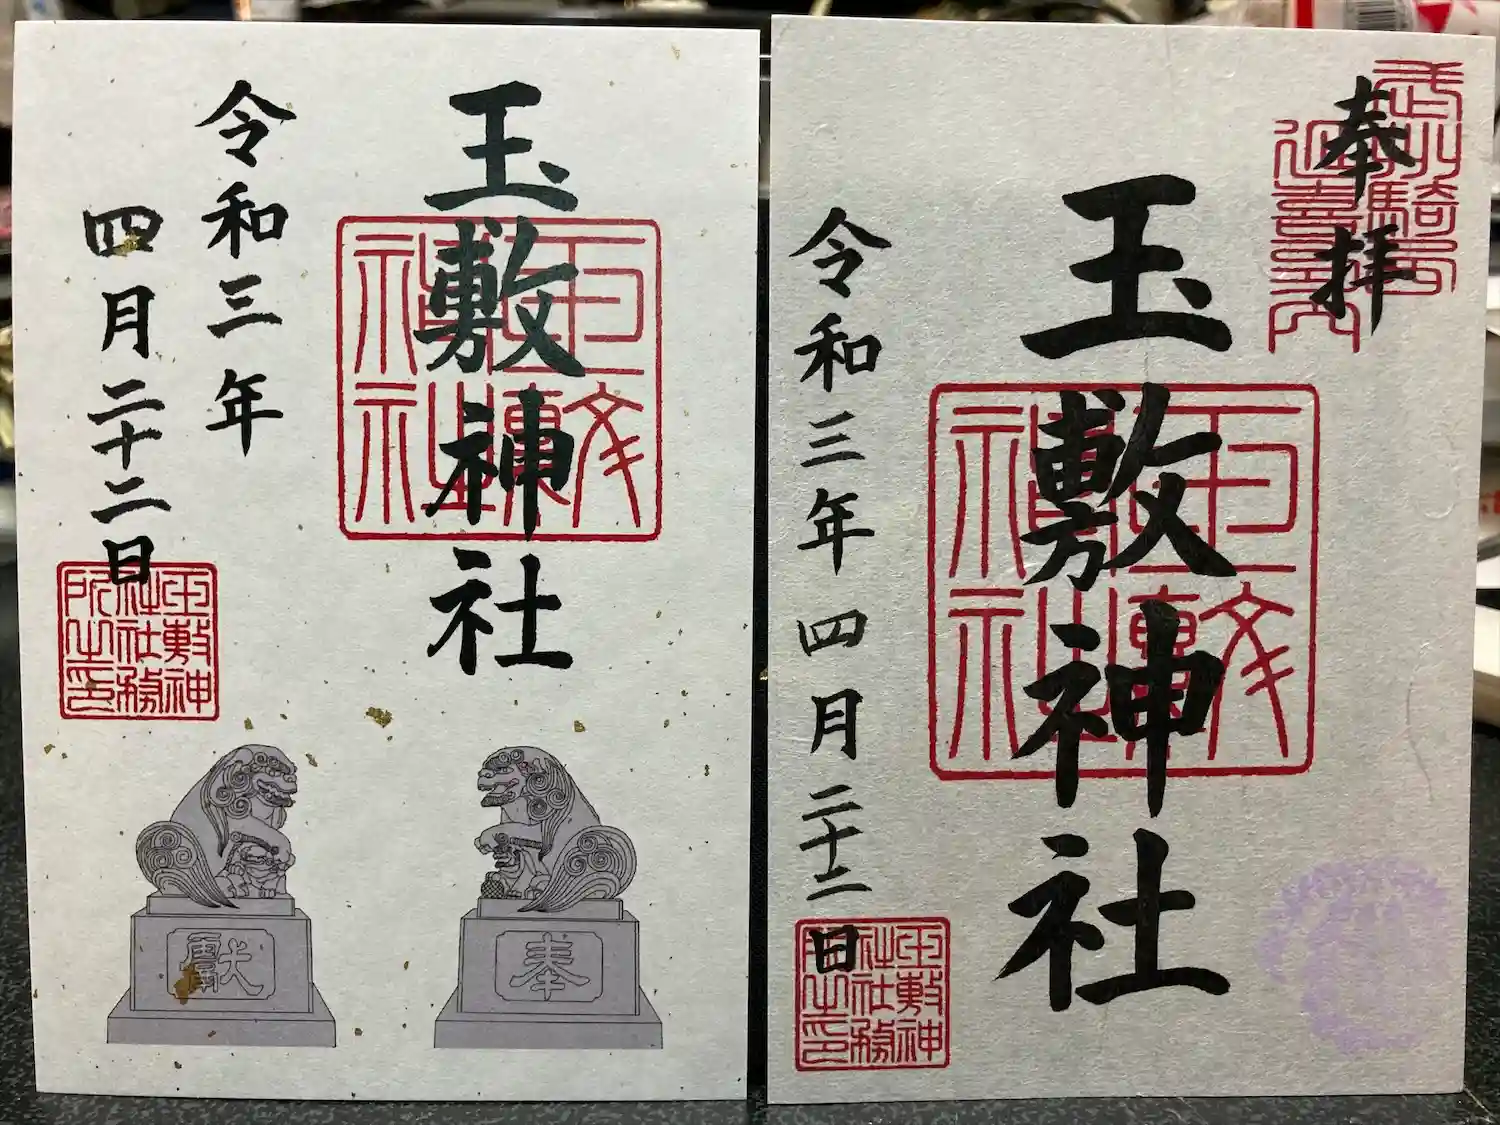 玉敷神社
令和三年
四月二十二日
玉敷神
社社務
所之印
獻
奉
奉拝
玉敷神社
令和三年四月二十二日
玉敷神
社社務
所之印